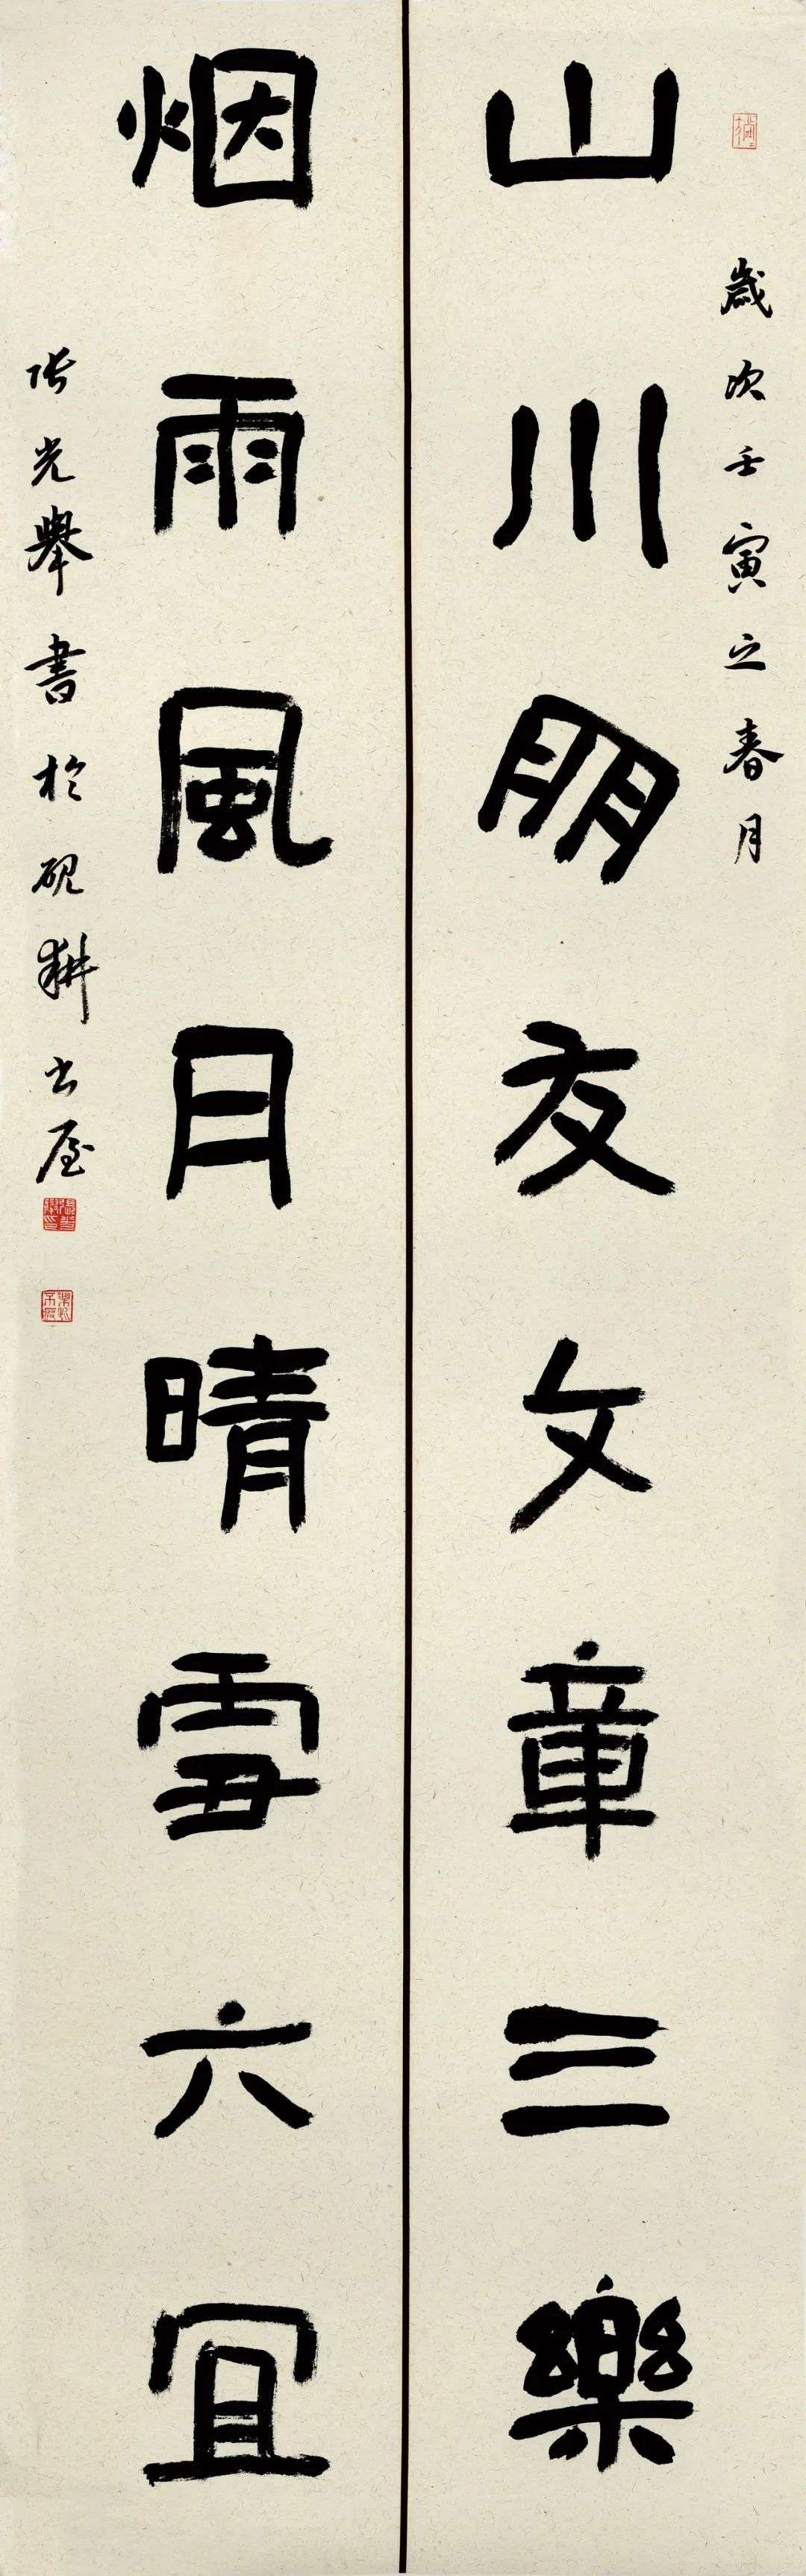 歲次壬寅之春月
山川朋友文章三樂
烟雨風月晴雪六宜
張光舉書於硯耕書屋